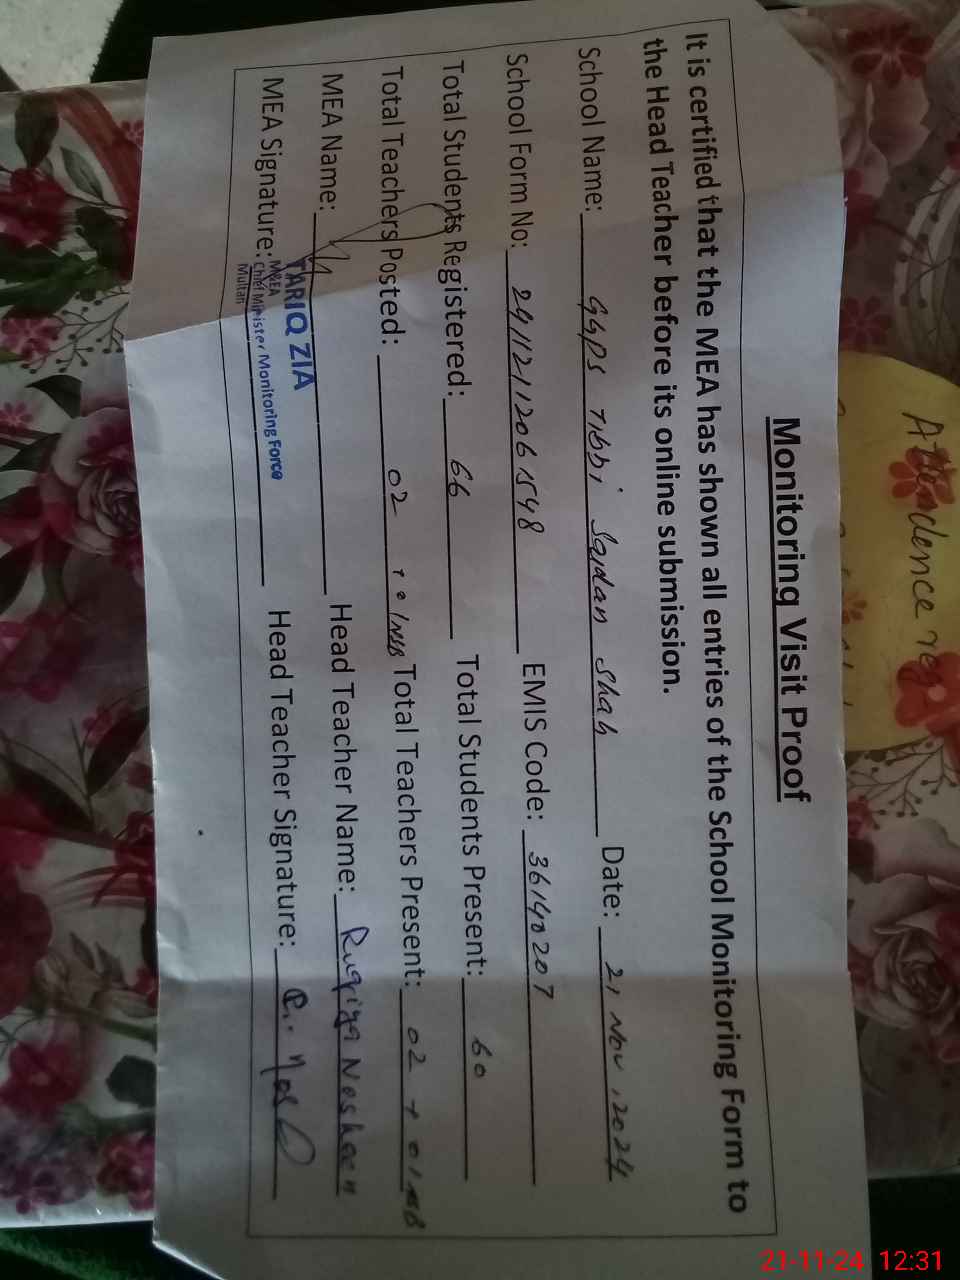 Attendence reg
Monitoring Visit Proof
It is certified that the MEA has shown all entries of the School Monitoring Form to
the Head Teacher before its online submission.
School Name: GGPS Tibbi Saydan Shah Date: 21 Nov, 2024
School Form No: EMIS Code: 36140207
Total Students Registered: 66 Total Students Present: 60
Total Teachers Posted: 02 Total Teachers Present: 02 + 01
MEA Name: Head Teacher Name: Ruqiya Nosheen
TARIQ ZIA
MEA Signature: Head Teacher Signature:
M&EA
Chief Minister Monitoring Force
Multan
21-11-24 12:31